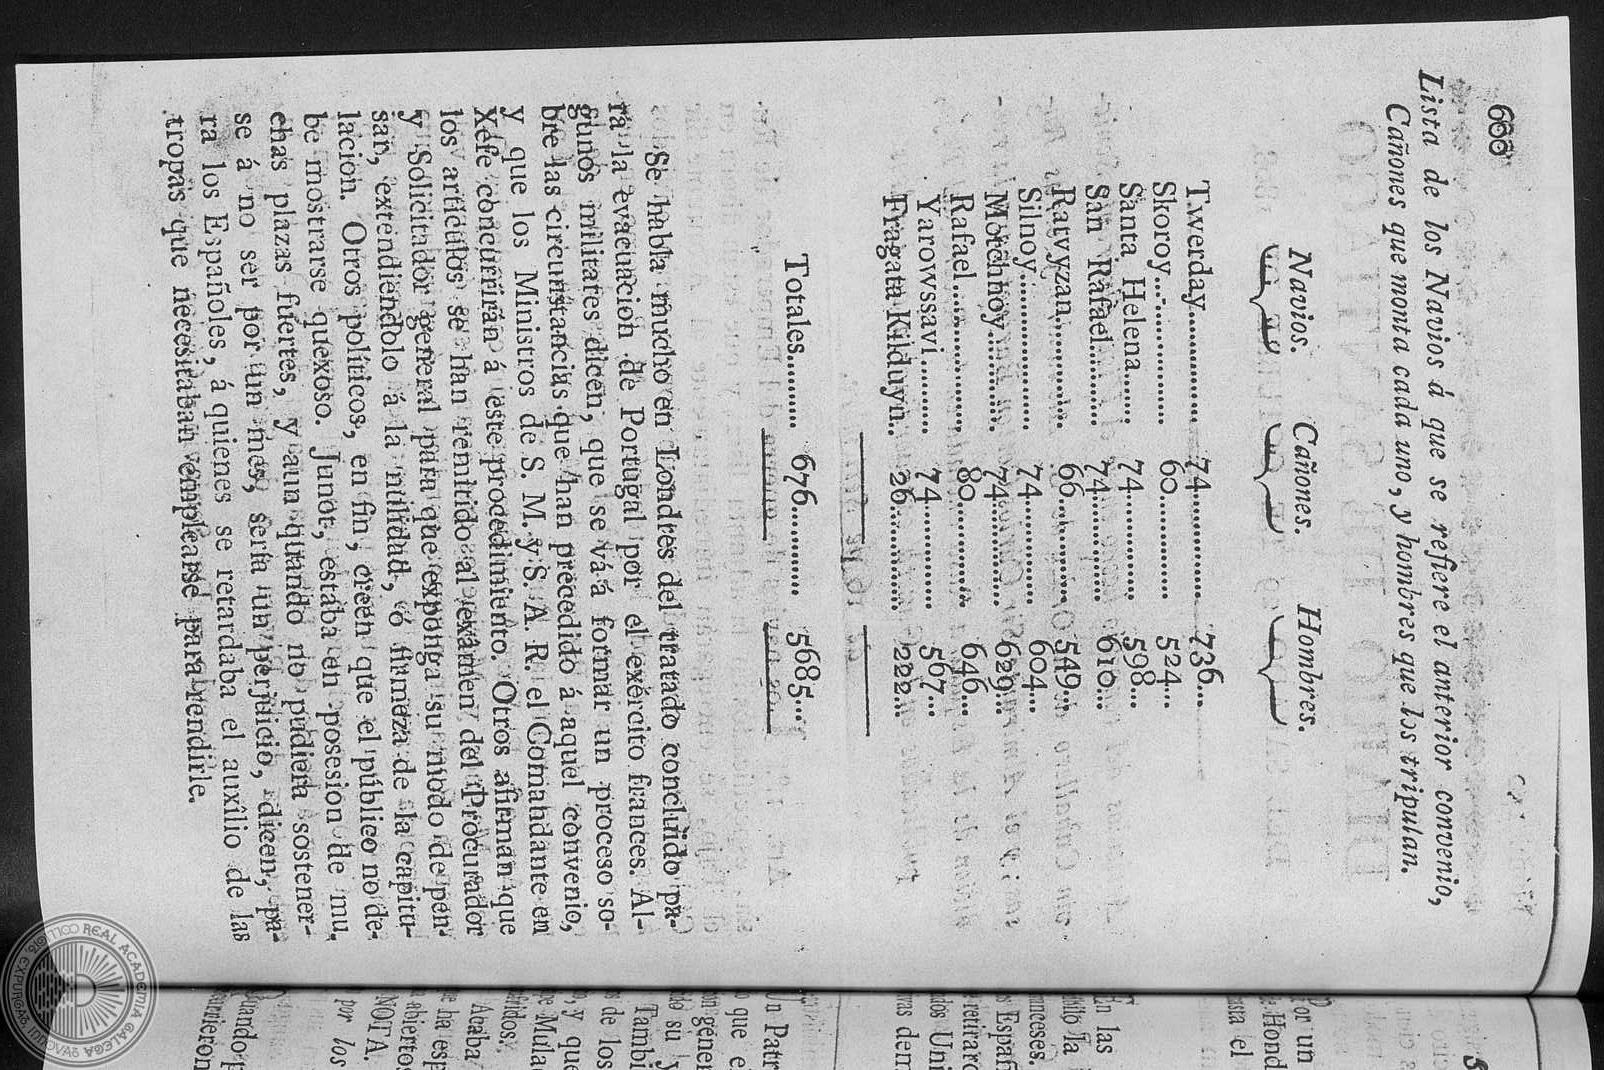 600
Lista de los Navios á que se refiere el anterior convenio,
Cañones que monta cada uno, y hombres que los tripulan.
Navios. Cañones. Hombres.
Twerday.............. 74.............. 736...
Skoroy............... 60.............. 524...
Santa Helena....... 74.............. 598...
San Rafael.......... 74.............. 610...
Ratvyzan............. 66.............. 549...
Silnoy................. 74.............. 604...
Motchnoy............ 74.............. 629...
Rafael................. 80.............. 646...
Yarowssavi.......... 74.............. 567...
Fragata Kilduyn.. 26.............. 222...
Totales......... 676........... 5685...
Se habla mucho en Londres del tratado concluido pa-
ra la evacuacion de Portugal por el exército frances. Al-
gunos militares dicen, que se vá á formar un proceso so-
bre las circunstancias que han precedido á aquel convenio,
y que los Ministros de S. M. y S. A. R. el Comandante en
Xefe concurrirán á este procedimiento. Otros afirman que
los artículos se han remitido al exámen del Procurador
y Solicitador general para que exponga su modo de pen-
sar, extendiéndolo á la nulidad, ó firmeza de la capitu-
lacion. Otros políticos, en fin, creen que el público no de-
be mostrarse quexoso. Junot, estaba en posesion de mu-
chas plazas fuertes, y aun quando no pudiera sostener-
se á no ser por un mes, sería un perjuicio, dicen, pa-
ra los Españoles, á quienes se retardaba el auxîlio de las
tropas que necesitaban emplearse para rendirle.
Por un
a Hond
asta el
En las
nceses.
s Españ
retirarc
dos Uni
vas dem
Un Patr
o que e
on géner
do su y
Tambi
s de los
o, y que
pe Mula
Acaba
e ha esp
abierto
NOTA.
por los
Quando p
urrieron
REAL ACADEMIA GALEGA